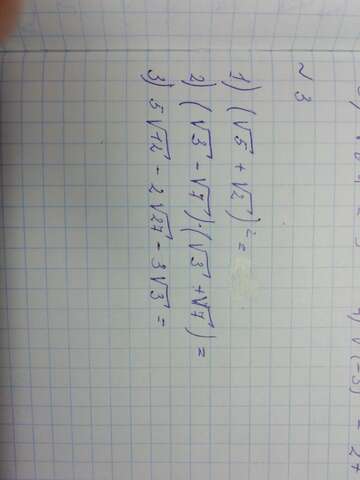 № 3
1) (√5 + √2)² =
2) (√3 - √7)·(√3 + √7) =
3) 5√12 - 2√27 - 3√3 =